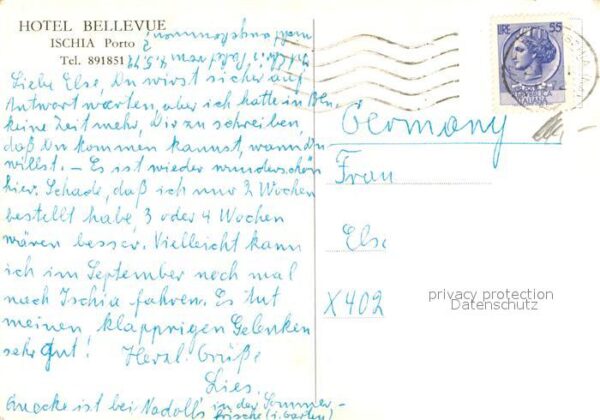 HOTEL BELLEVUE
ISCHIA Porto
Tel. 891851
Liebe Else, Du wirst sicher auf
Antwort warten, aber ich hatte in Bln.
keine Zeit mehr, Dir zu schreiben,
daß Du kommen kannst, wann Du
willst. – Es ist wieder wunderschön
hier. Schade, daß ich nur 2 Wochen
bestellt habe, 3 oder 4 Wochen
wären besser. Vielleicht kann
ich im September noch mal
nach Ischia fahren. Es tut
meinen klapprigen Gelenken
sehr gut! Herzl. Grüße
Lies.
ist bei Nadolls in der Sommer-
frische (i. Garten)
LIRE 55
REPUBBLICA
ITALIANA
Germany
Frau
Else
X402
privacy protection
Datenschutz